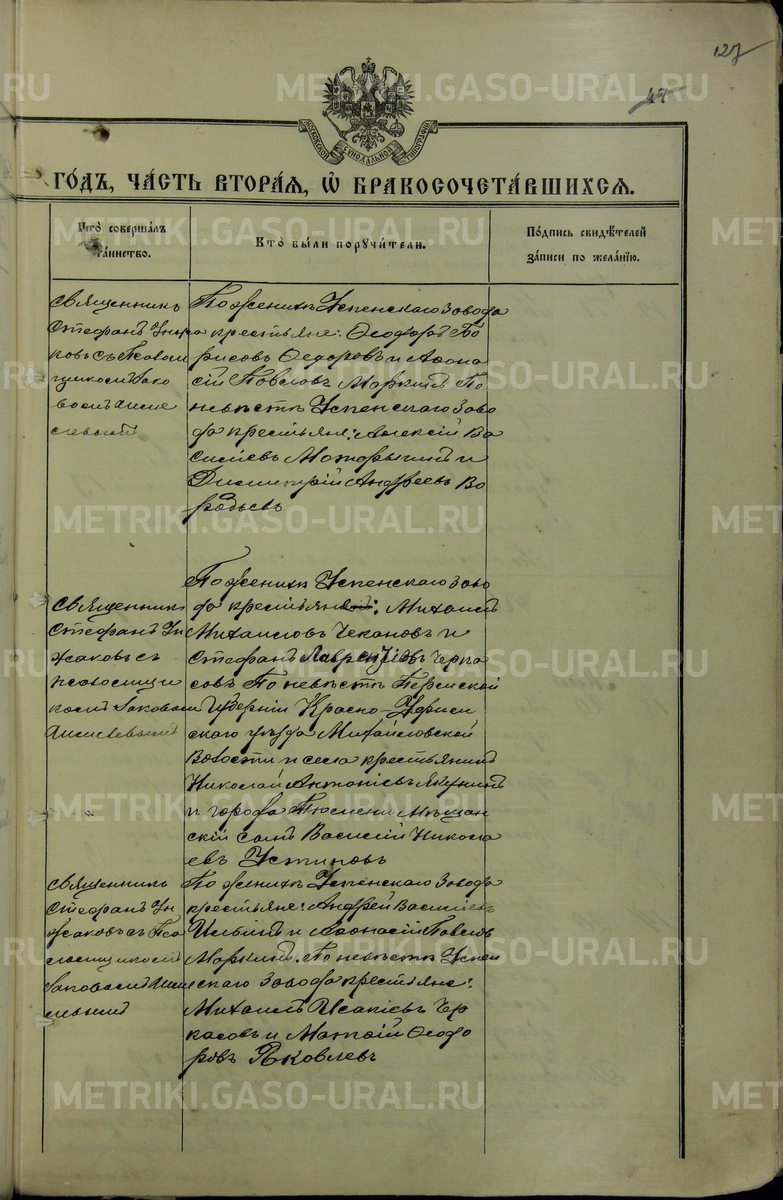 127
47
МОСКОВСКОЙ СѴНОДАЛЬНОЙ ТИПОГРАФІИ
ГО́ДЪ, ЧА́СТЬ ВТОРА́Я, Ѽ БРАКОСОЧЕТА́ВШИХСѦ.
Кто̀ соверша́лъ
та́инство.
Кто̀ бы́ли порꙋчи́тели.
По́дпись свидѣ́телей
за́писи по жела́нїю.
Священникъ
Стефанъ
ковъ съ Псалом
щикомъ Яко
вомъ
По женихѣ Успенскаго завода
крестьяне: Ѳеодоръ Бо
рисовъ Ѳедоровъ и Аѳона
сій Павловъ Маркинъ По
невѣстѣ Успенскаго Заво
да крестьяне: Алексій Ва
сильевъ и
Димитрій Андреевъ Во
робьевъ
Священникъ
Стефанъ Ун
жаковъ съ
псаломщи
комъ Яковомъ
По женихѣ Успенскаго заво
да крестьяне: Михаилъ
Михаиловъ Чекановъ и
Стефанъ Лаврентіевъ Черка
совъ По невѣстѣ Пермской
Губерніи Красно-Уфим
скаго уѣзда Михайловской
Волости и села крестьянинъ
Николай Антоніевъ Якунинъ
и города Тюмени Мѣщан
скій сынъ Василій Никола
евъ Устиновъ
Священникъ
Стефанъ Ун
жаковъ съ Пса
ломщикомъ
Яковомъ
По женихѣ Успенскаго Завода
крестьяне: Андрей Васильевъ
Ильинъ и Аѳонасій Павловъ
Маркинъ. По невѣстѣ Успен
скаго Завода крестьяне:
Михаилъ Исакіевъ Чер
касовъ и Матѳій Ѳеодо
ровъ Яковлевъ
METRIKI.GASO-URAL.RU